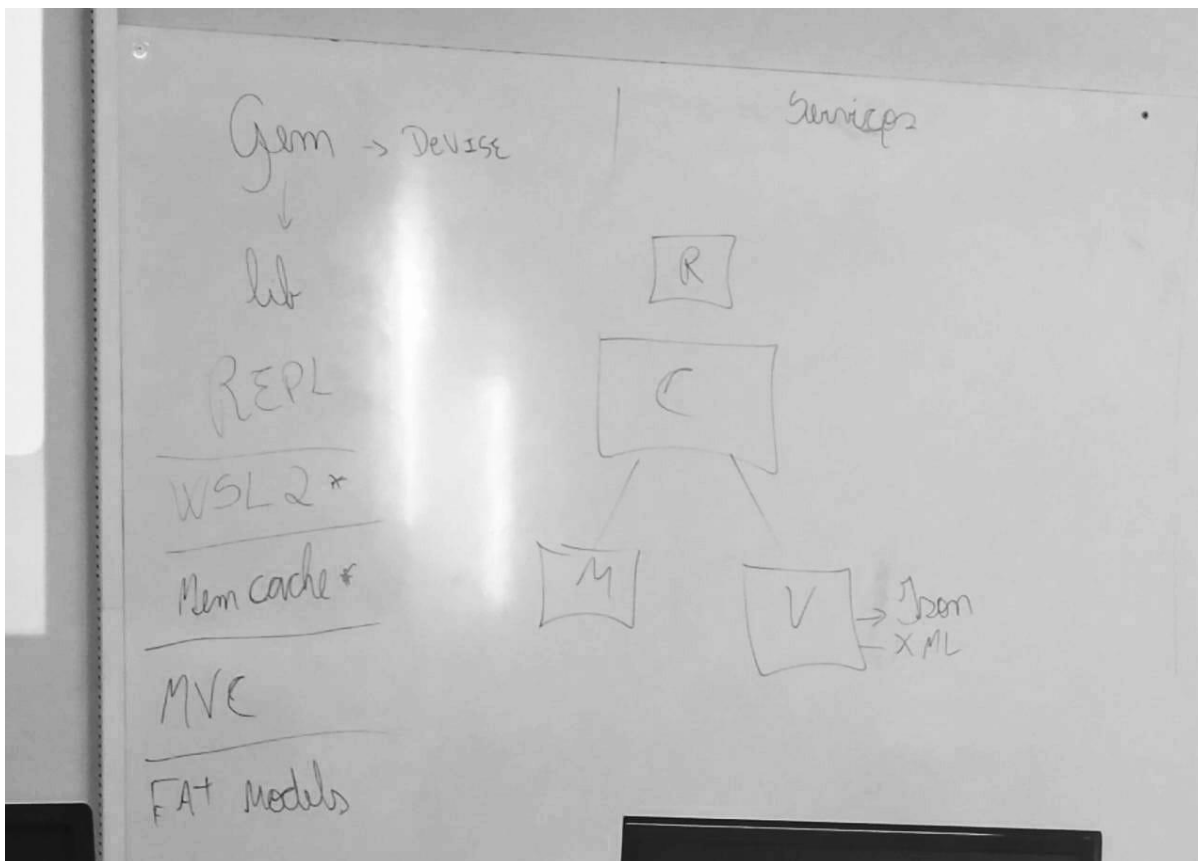 Gem → DeVISE
↓
lib
REPL
WSL2*
Mem cache*
MVC
FAt Models
Serviços
R
C
M
V
→ Json
– XML